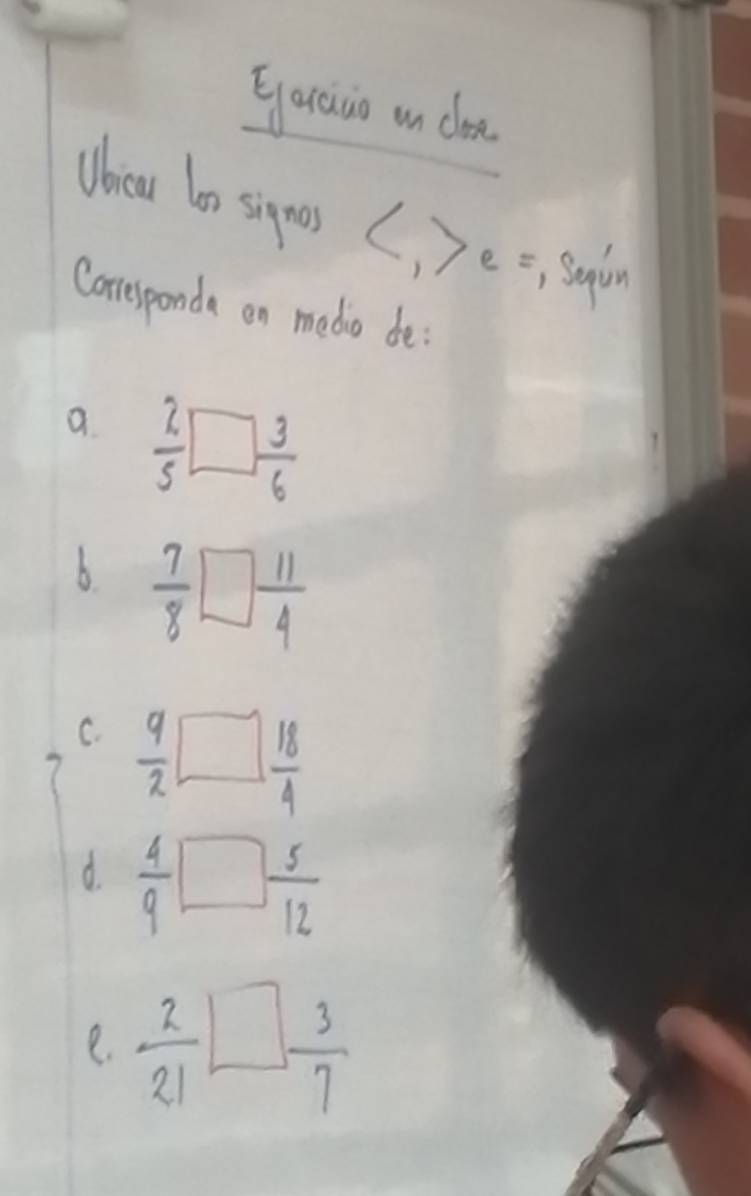 Ejercicio en clase
Ubicar los signos <, > e =, Según
Corresponda en medio de:
a. 2/5 □ 3/6
b. 7/8 □ 11/4
c. 9/2 □ 18/4
d. 4/9 □ 5/12
e. 2/21 □ 3/7